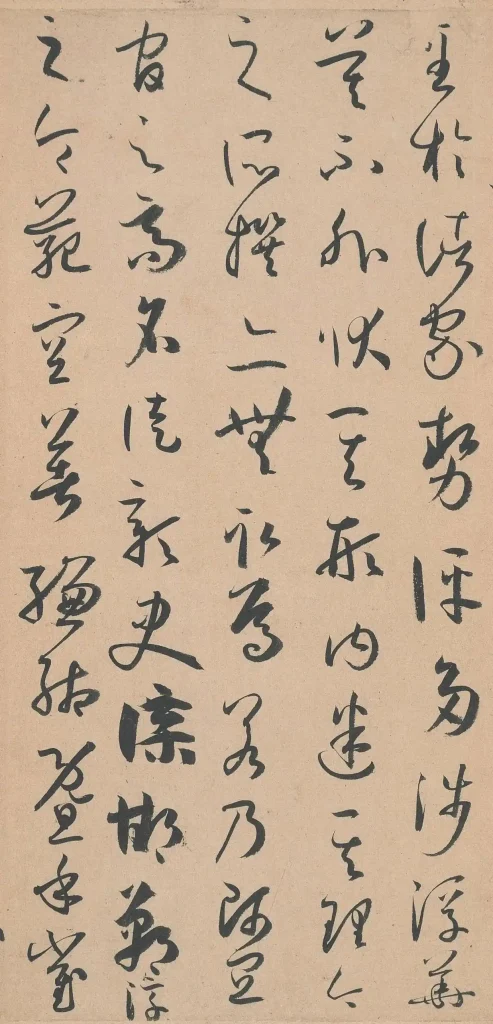 至於諸家勢評多涉浮華
莫不外狀其形內迷其理今
之所撰亦無取焉若乃師宜
官之高名徒彰史諜邯鄲淳
之令範空著縑緗暨乎崔